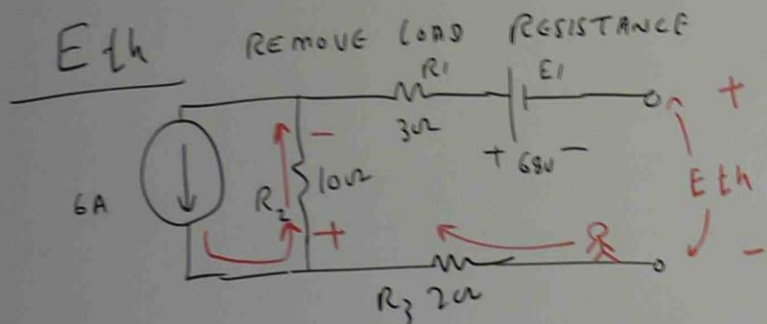 Eth REMOVE LOAD RESISTANCE
R1 E1
3Ω + 68V - +
6A R2 10Ω - + Eth
R3 2Ω -